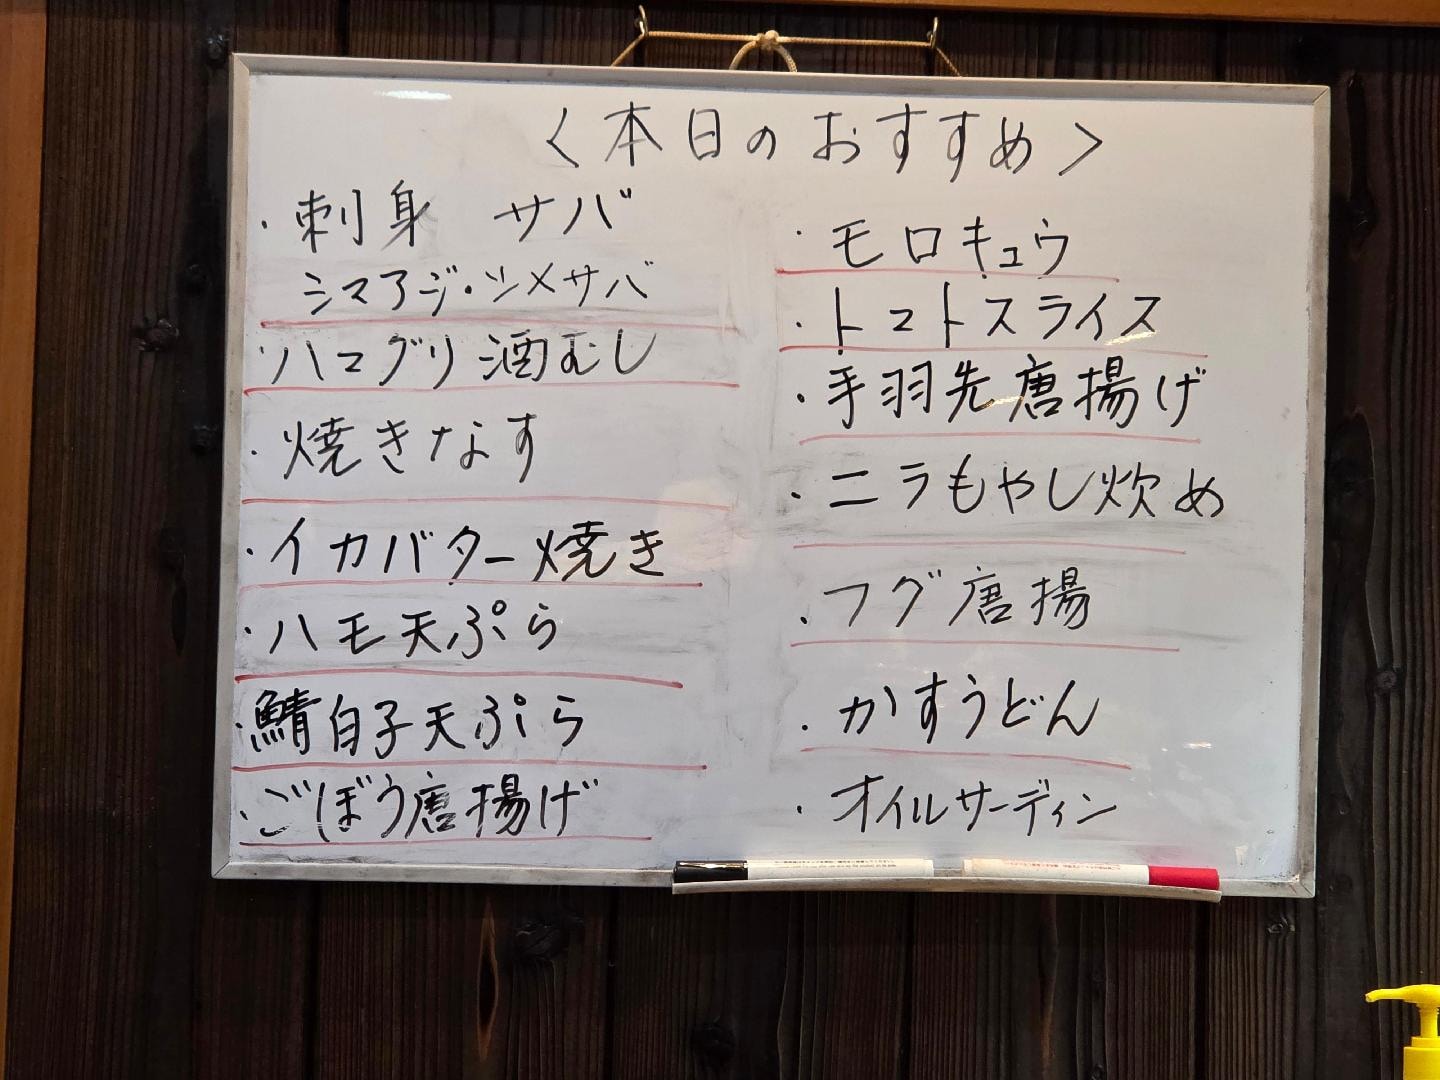 <本日のおすすめ>
・刺身 サバ
シマアジ・シメサバ
・ハマグリ酒むし
・焼きなす
・イカバター焼き
・ハモ天ぷら
・鯖白子天ぷら
・ごぼう唐揚げ
・モロキュウ
・トマトスライス
・手羽先唐揚げ
・ニラもやし炒め
・フグ唐揚
・かすうどん
・オイルサーディン